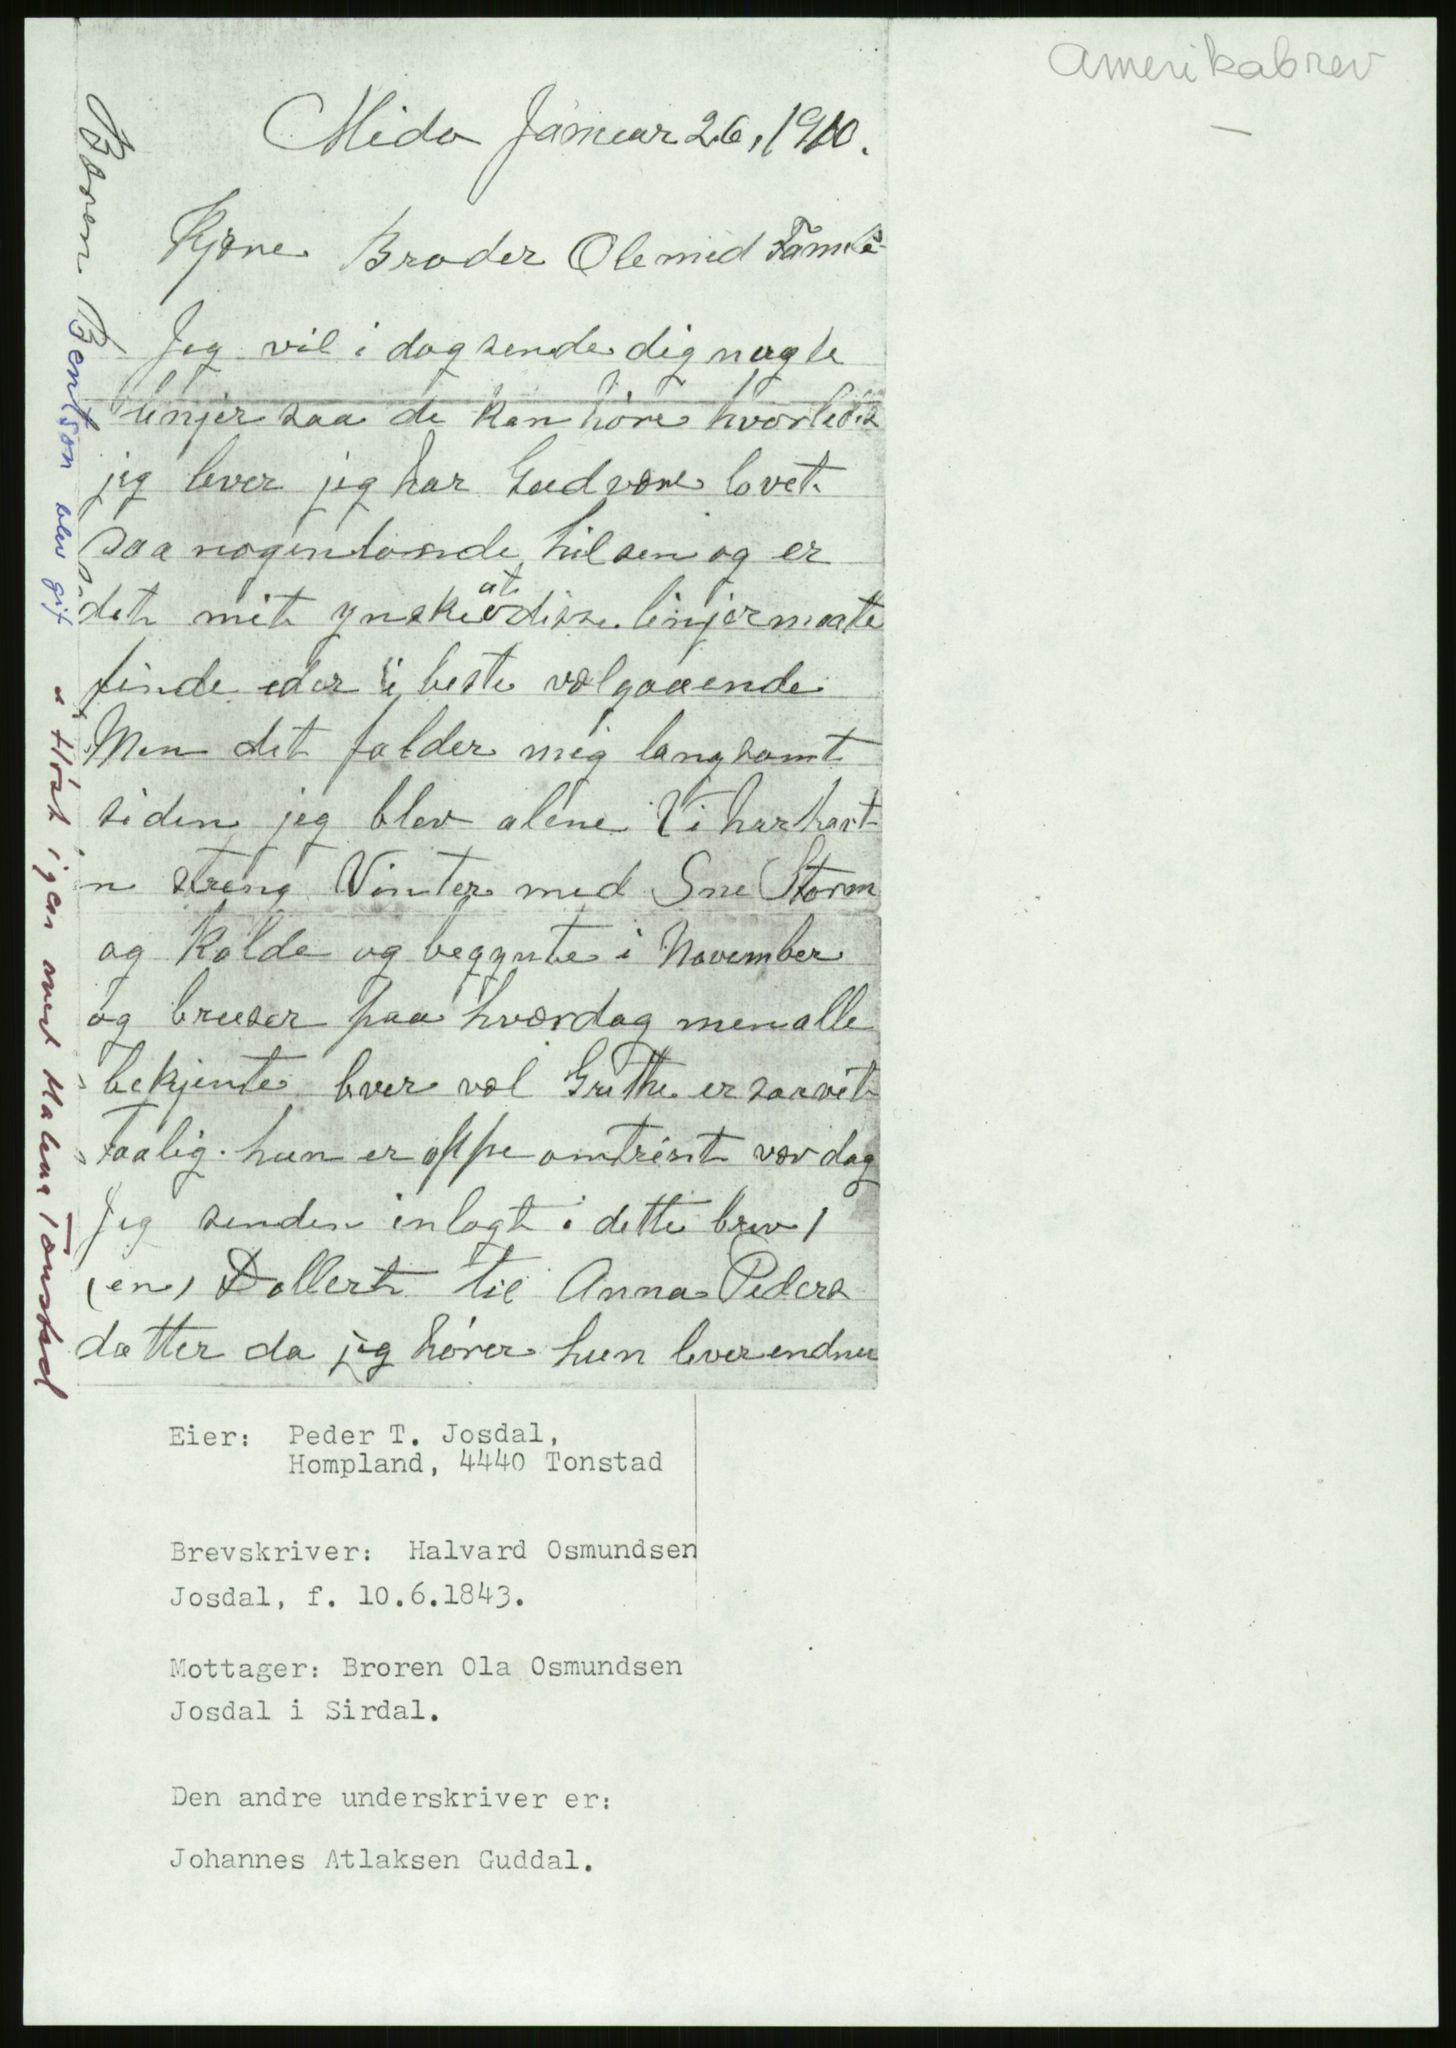 Amerikabrev
Mido Januar 26, 1910.
Kjære Broder Ole med Famile
Jeg vil i dag sende dig nogle
linjer saa de kan høre hvorledes
jeg lever jeg har Gud være lovet
saa nogenlonde hilsen og er
det mit ynske at disse linjer maate
finde eder i beste velgaaende
Men det falder mig langsomt
siden jeg blev alene Vi har havt
n streng Vinter med Sne Storm
og Kolde og begynte i November
og bruser paa hverdag men alle
bekjente lever vel Grethe er saavit
taalig. hun er oppe omtrent vær dag
Jeg sender inlagt i dette brev 1
(en) Dollert til Anna Peders
datter da jeg hører hun lever endnu
Bæren Bentson blev gift i Høst igen med Malena Tonstad
Eier: Peder T. Josdal,
Hompland, 4440 Tonstad
Brevskriver: Halvard Osmundsen
Josdal, f. 10.6.1843.
Mottager: Broren Ola Osmundsen
Josdal i Sirdal.
Den andre underskriver er:
Johannes Atlaksen Guddal.